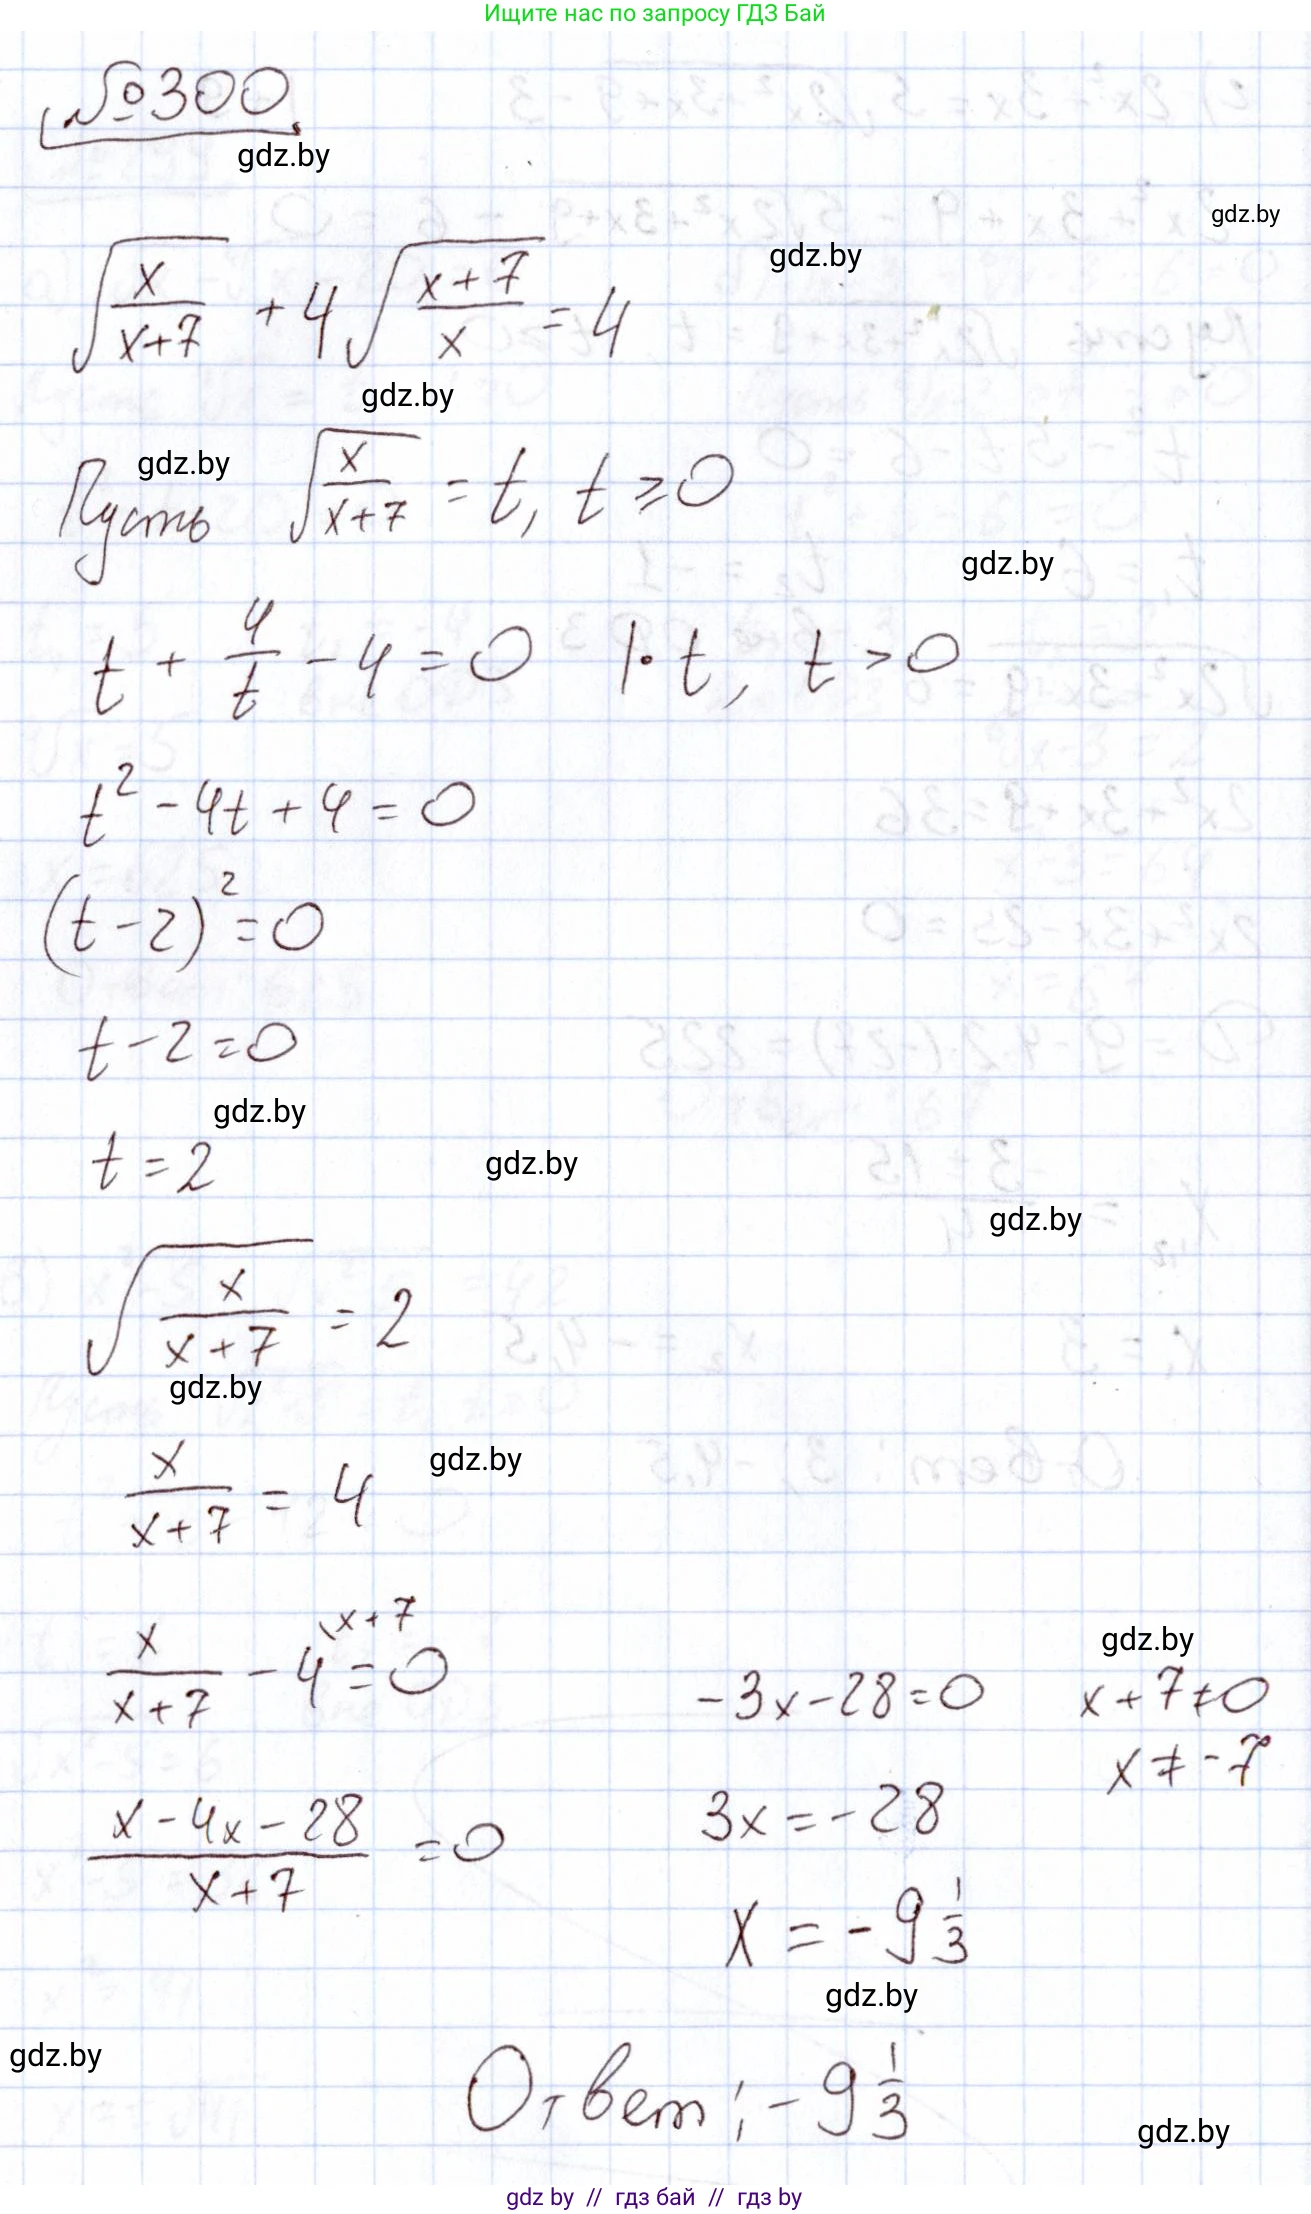 Ищите нас по запросу ГДЗ Бай
№300
gdz.by
gdz.by
gdz.by
√(x/(x+7)) + 4√((x+7)/x) = 4
gdz.by
gdz.by
Пусть √(x/(x+7)) = t, t ≥ 0
gdz.by
t + 4/t - 4 = 0 |· t, t > 0
t² - 4t + 4 = 0
(t - 2)² = 0
t - 2 = 0
gdz.by
t = 2
gdz.by
gdz.by
√(x/(x+7)) = 2
gdz.by
gdz.by
x/(x+7) = 4
x/(x+7) - 4\x+7 = 0
(x - 4x - 28)/(x+7) = 0
gdz.by
-3x - 28 = 0 x + 7 ≠ 0
x ≠ -7
3x = -28
x = -9 1/3
gdz.by
gdz.by
Ответ: -9 1/3
gdz.by
gdz by // гдз бай // гдз by